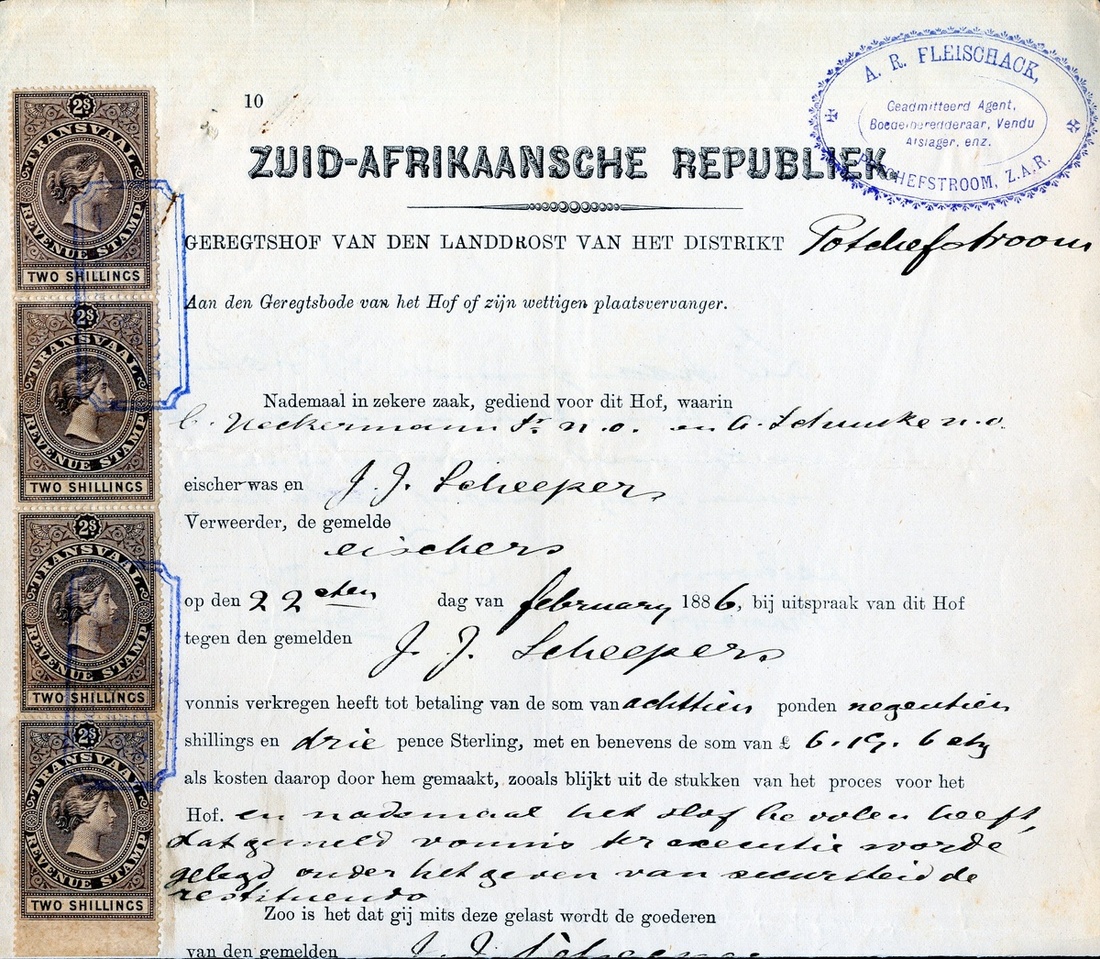 10
A. R. FLEISCHACK,
Geadmitteerd Agent,
Boedelberedderaar, Vendu
Afslager, enz.
POTCHEFSTROOM, Z.A.R.
ZUID-AFRIKAANSCHE REPUBLIEK.
GEREGTSHOF VAN DEN LANDDROST VAN HET DISTRIKT Potchefstroom
Aan den Geregtsbode van het Hof of zijn wettigen plaatsvervanger.
Nademaal in zekere zaak, gediend voor dit Hof, waarin
C. Neckermann Jr. n.o. en n.o.
eischer was en J. J. Scheepers
Verweerder, de gemelde
eischers
op den 22sten dag van februarij 1886, bij uitspraak van dit Hof
tegen den gemelden J. J. Scheepers
vonnis verkregen heeft tot betaling van de som van achttien ponden negentien
shillings en drie pence Sterling, met en benevens de som van £ 6.19.6
als kosten daarop door hem gemaakt, zooals blijkt uit de stukken van het proces voor het
Hof. en nademaal het Hof bevolen heeft,
dat gemeld vonnis ter executie worde
gelegd onder het geven van securiteid de
restituendo
Zoo is het dat gij mits deze gelast wordt de goederen
van den gemelden J. J. Scheepers
2S
TRANSVAAL
REVENUE STAMP
TWO SHILLINGS
2S
TRANSVAAL
REVENUE STAMP
TWO SHILLINGS
2S
TRANSVAAL
REVENUE STAMP
TWO SHILLINGS
2S
TRANSVAAL
REVENUE STAMP
TWO SHILLINGS